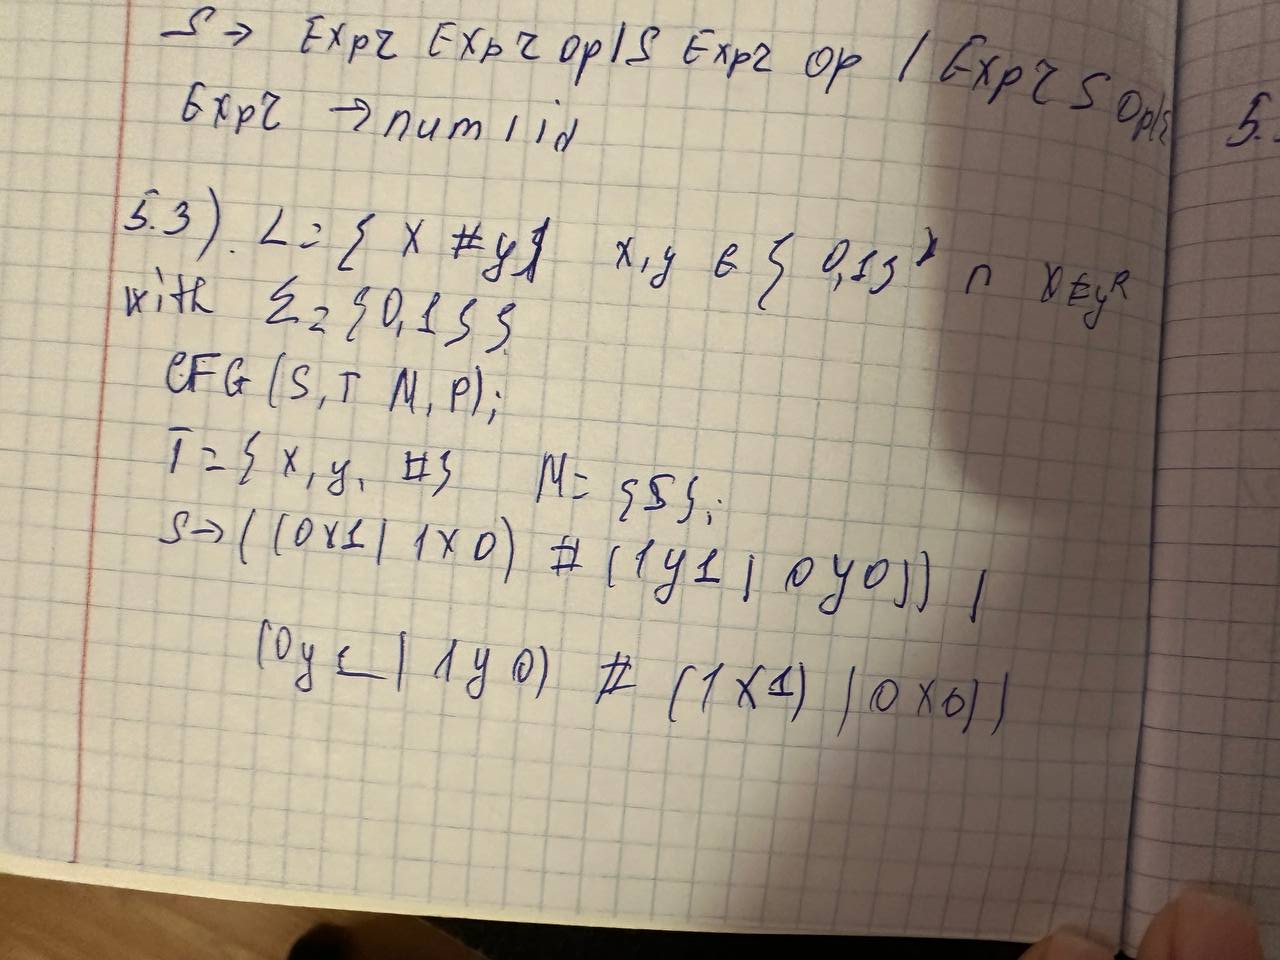 S → Expr Expr op | S Expr op | Expr S op | ε
Expr → num | id
5.
5.3). L = { x #y} x, y ∈ { 0,1}* ∩ x ≠ yᴿ
with Σ = {0,1}}
CFG (S, T N, P);
T = { x, y, #} N = {S};
S → ((0x1 | 1x0) # (1y1 | 0y0)) |
(0y1 | 1y0) # (1x1) | 0x0))